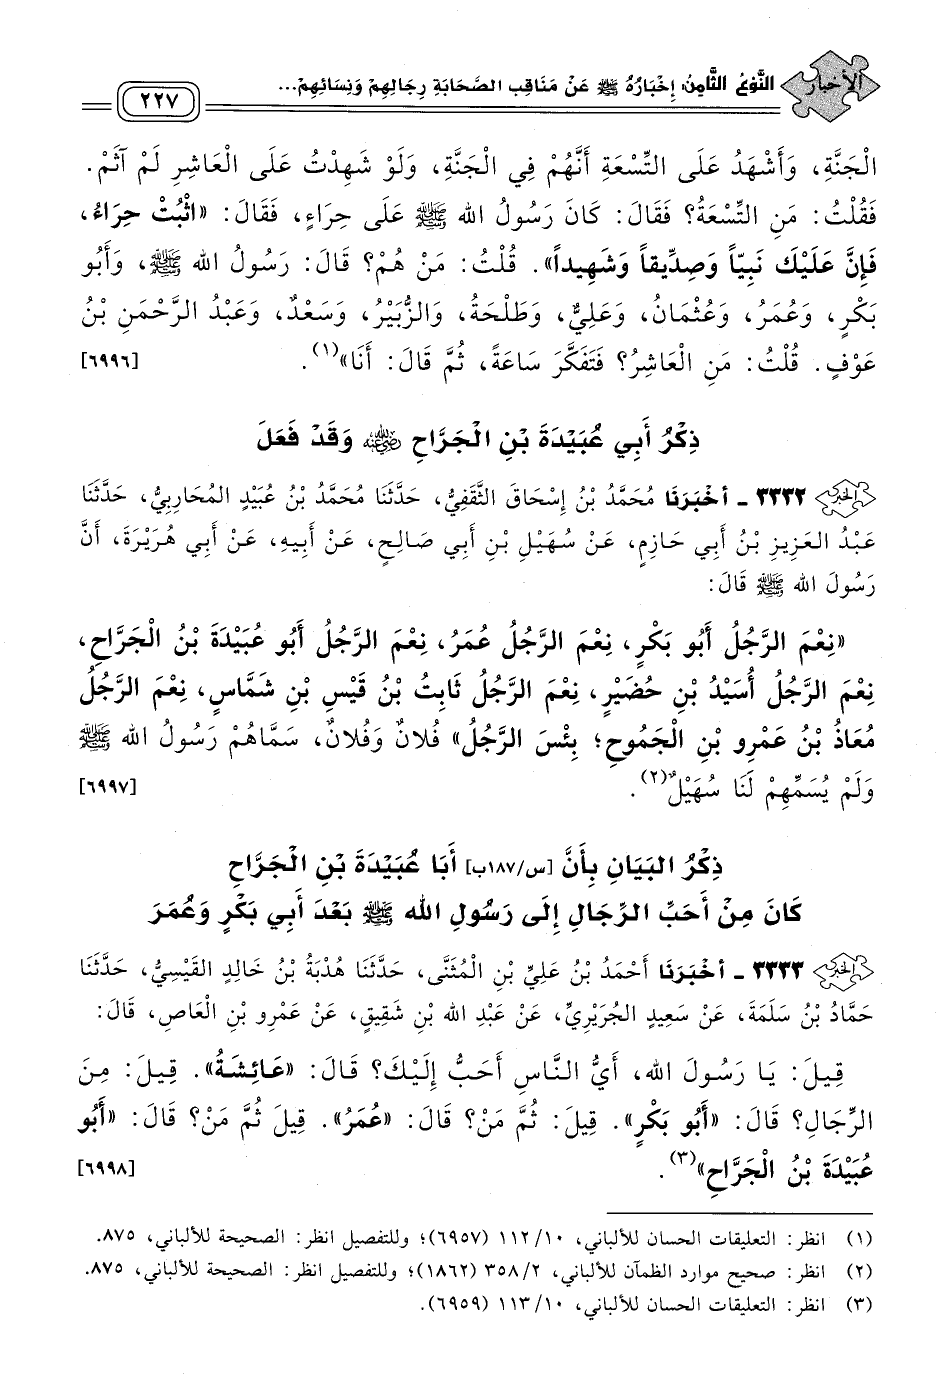 الأخبار
النَّوْعُ الثَّامِنُ: إِخْبَارُهُ ﷺ عَنْ مَنَاقِبِ الصَّحَابَةِ رِجَالِهِمْ وَنِسَائِهِمْ...
٢٢٧
الْجَنَّةِ، وَأَشْهَدُ عَلَى التِّسْعَةِ أَنَّهُمْ فِي الْجَنَّةِ، وَلَوْ شَهِدْتُ عَلَى الْعَاشِرِ لَمْ آثَمْ.
فَقُلْتُ: مَنِ التِّسْعَةُ؟ فَقَالَ: كَانَ رَسُولُ الله ﷺ عَلَى حِرَاءٍ، فَقَالَ: «اثْبُتْ حِرَاءُ،
فَإِنَّ عَلَيْكَ نَبِيّاً وَصِدِّيقاً وَشَهِيداً». قُلْتُ: مَنْ هُمْ؟ قَالَ: رَسُولُ الله ﷺ، وَأَبُو
بَكْرٍ، وَعُمَرُ، وَعُثْمَانُ، وَعَلِيٌّ، وَطَلْحَةُ، وَالزُّبَيْرُ، وَسَعْدٌ، وَعَبْدُ الرَّحْمَنِ بْنُ
عَوْفٍ. قُلْتُ: مَنِ الْعَاشِرُ؟ فَتَفَكَّرَ سَاعَةً، ثُمَّ قَالَ: أَنَا»(١). [٦٩٩٦]
ذِكْرُ أَبِي عُبَيْدَةَ بْنِ الْجَرَّاحِ رضي الله عنه وَقَدْ فَعَلَ
الخبر ٣٣٣٢ - أَخْبَرَنَا مُحَمَّدُ بْنُ إِسْحَاقَ الثَّقَفِيُّ، حَدَّثَنَا مُحَمَّدُ بْنُ عُبَيْدٍ المُحَارِبِيُّ، حَدَّثَنَا
عَبْدُ العَزِيزِ بْنُ أَبِي حَازِمٍ، عَنْ سُهَيْلِ بْنِ أَبِي صَالِحٍ، عَنْ أَبِيهِ، عَنْ أَبِي هُرَيْرَةَ، أَنَّ
رَسُولَ الله ﷺ قَالَ:
«نِعْمَ الرَّجُلُ أَبُو بَكْرٍ، نِعْمَ الرَّجُلُ عُمَرُ، نِعْمَ الرَّجُلُ أَبُو عُبَيْدَةَ بْنُ الْجَرَّاحِ،
نِعْمَ الرَّجُلُ أُسَيْدُ بْنِ حُضَيْرٍ، نِعْمَ الرَّجُلُ ثَابِتُ بْنُ قَيْسِ بْنِ شَمَّاسٍ، نِعْمَ الرَّجُلُ
مُعَاذُ بْنُ عَمْرِو بْنِ الْجَمُوحِ؛ بِئْسَ الرَّجُلُ» فُلَانٌ وَفُلَانٌ، سَمَّاهُمْ رَسُولُ الله ﷺ
وَلَمْ يُسَمِّهِمْ لَنَا سُهَيْلٌ(٢). [٦٩٩٧]
ذِكْرُ البَيَانِ بِأَنَّ [س/١٨٧ب] أَبَا عُبَيْدَةَ بْنِ الْجَرَّاحِ
كَانَ مِنْ أَحَبِّ الرِّجَالِ إِلَى رَسُولِ الله ﷺ بَعْدَ أَبِي بَكْرٍ وَعُمَرَ
الخبر ٣٣٣٣ - أَخْبَرَنَا أَحْمَدُ بْنُ عَلِيِّ بْنِ الْمُثَنَّى، حَدَّثَنَا هُدْبَةُ بْنُ خَالِدٍ القَيْسِيُّ، حَدَّثَنَا
حَمَّادُ بْنُ سَلَمَةَ، عَنْ سَعِيدٍ الجُرَيْرِيِّ، عَنْ عَبْدِ الله بْنِ شَقِيقٍ، عَنْ عَمْرِو بْنِ الْعَاصِ، قَالَ:
قِيلَ: يَا رَسُولَ الله، أَيُّ النَّاسِ أَحَبُّ إِلَيْكَ؟ قَالَ: «عَائِشَةُ». قِيلَ: مِنَ
الرِّجَالِ؟ قَالَ: «أَبُو بَكْرٍ». قِيلَ: ثُمَّ مَنْ؟ قَالَ: «عُمَرُ». قِيلَ ثُمَّ مَنْ؟ قَالَ: «أَبُو
عُبَيْدَةَ بْنُ الْجَرَّاحِ»(٣). [٦٩٩٨]
(١) انظر: التعليقات الحسان للألباني، ١١٢/١٠ (٦٩٥٧)؛ وللتفصيل انظر: الصحيحة للألباني، ٨٧٥.
(٢) انظر: صحيح موارد الظمآن للألباني، ٣٥٨/٢ (١٨٦٢)؛ وللتفصيل انظر: الصحيحة للألباني، ٨٧٥.
(٣) انظر: التعليقات الحسان للألباني، ١١٣/١٠ (٦٩٥٩).